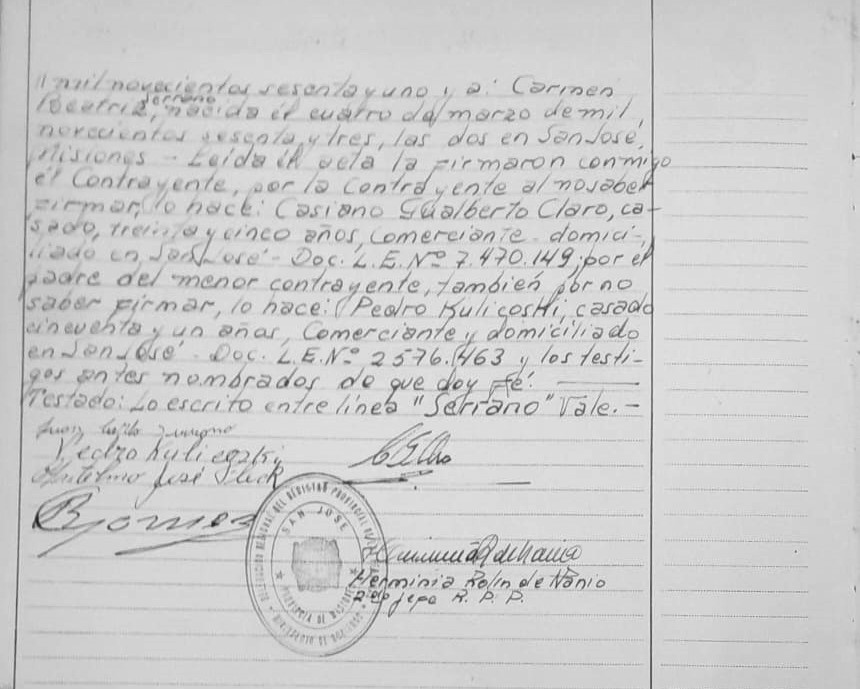 mil novecientos sesenta y uno y a: Carmen
Serrano
Beatriz, nacida el cuatro de marzo de mil
novecientos sesenta y tres, las dos en San José,
Misiones - Leída el acta la firmaron conmigo
el Contrayente, por la Contrayente al no saber
firmar, lo hace: Casiano Gualberto Claro, ca-
sado, treinta y cinco años, comerciante domici-
liado en San José - Doc. L.E. Nº 7.470.149; por el
padre del menor contrayente, también por no
saber firmar, lo hace: Pedro Kulicoski, casado
cincuenta y un años, Comerciante y domiciliado
en San José - Doc. L.E. Nº 2576.463 y los testi-
gos antes nombrados de que doy Fé.
Testado: Lo escrito entre línea "Serrano" Vale.-
Pedro Kulicoski
Anselmo José
SAN JOSE
PROVINCIA DE MISIONES
Herminia Rolin de Nanio
2do jefe R. P. P.